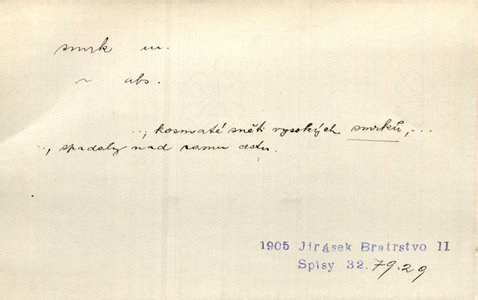 smrk m.
~ abs.
..., kosmaté sněti vysokých smrků, ...
..., spadaly nad samu cestu.
1905 Jirásek Bratrstvo II
Spisy 32. 79.29